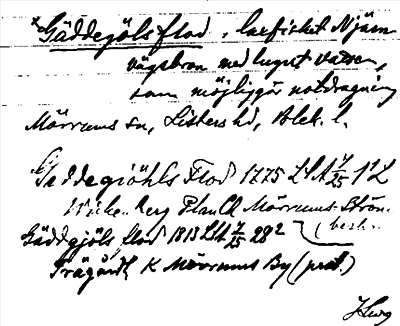 × Gäddegölsflod, laxfisket Njäm
vägsbron med lugnt vatten,
som möjliggör notdragning
Mörrums sn, Listers hd, Blek. l.
Gaddegiöhls Flod 1775 LSA 7/25 1¹ L
Plan Ch Mörrums Ström
Gäddgjöls flod 1813 LSA 7/25 28²
Trägårdh K Mörrums By (prot.)